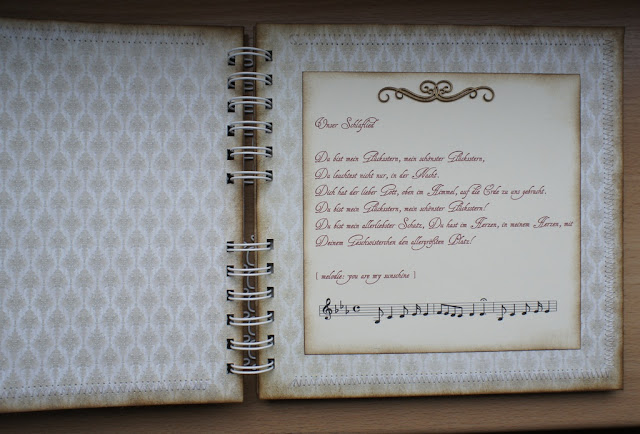 Unser Schlaflied
Du bist mein Glücksstern, mein schönster Glücksstern,
Du leuchtest nicht nur, in der Nacht.
Dich hat der lieber Gott, oben im Himmel, auf die Erde zu uns gebracht.
Du bist mein Glücksstern, mein schönster Glücksstern!
Du bist mein allerliebster Schatz, Du hast im Herzen, in meinem Herzen, mit
Deinem Geschwisterchen den allergrößten Platz!
[ melodie: you are my sunshine ]